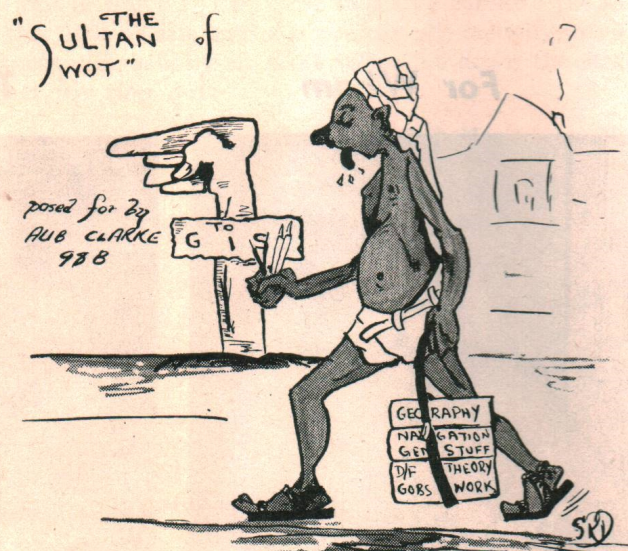 "THE
SULTAN of
WOT"
posed for by
AUB CLARKE
98B
TO
G I S
GEOGRAPHY
NAVIGATION
GEN STUFF
D/F THEORY
GOBS WORK
SKD